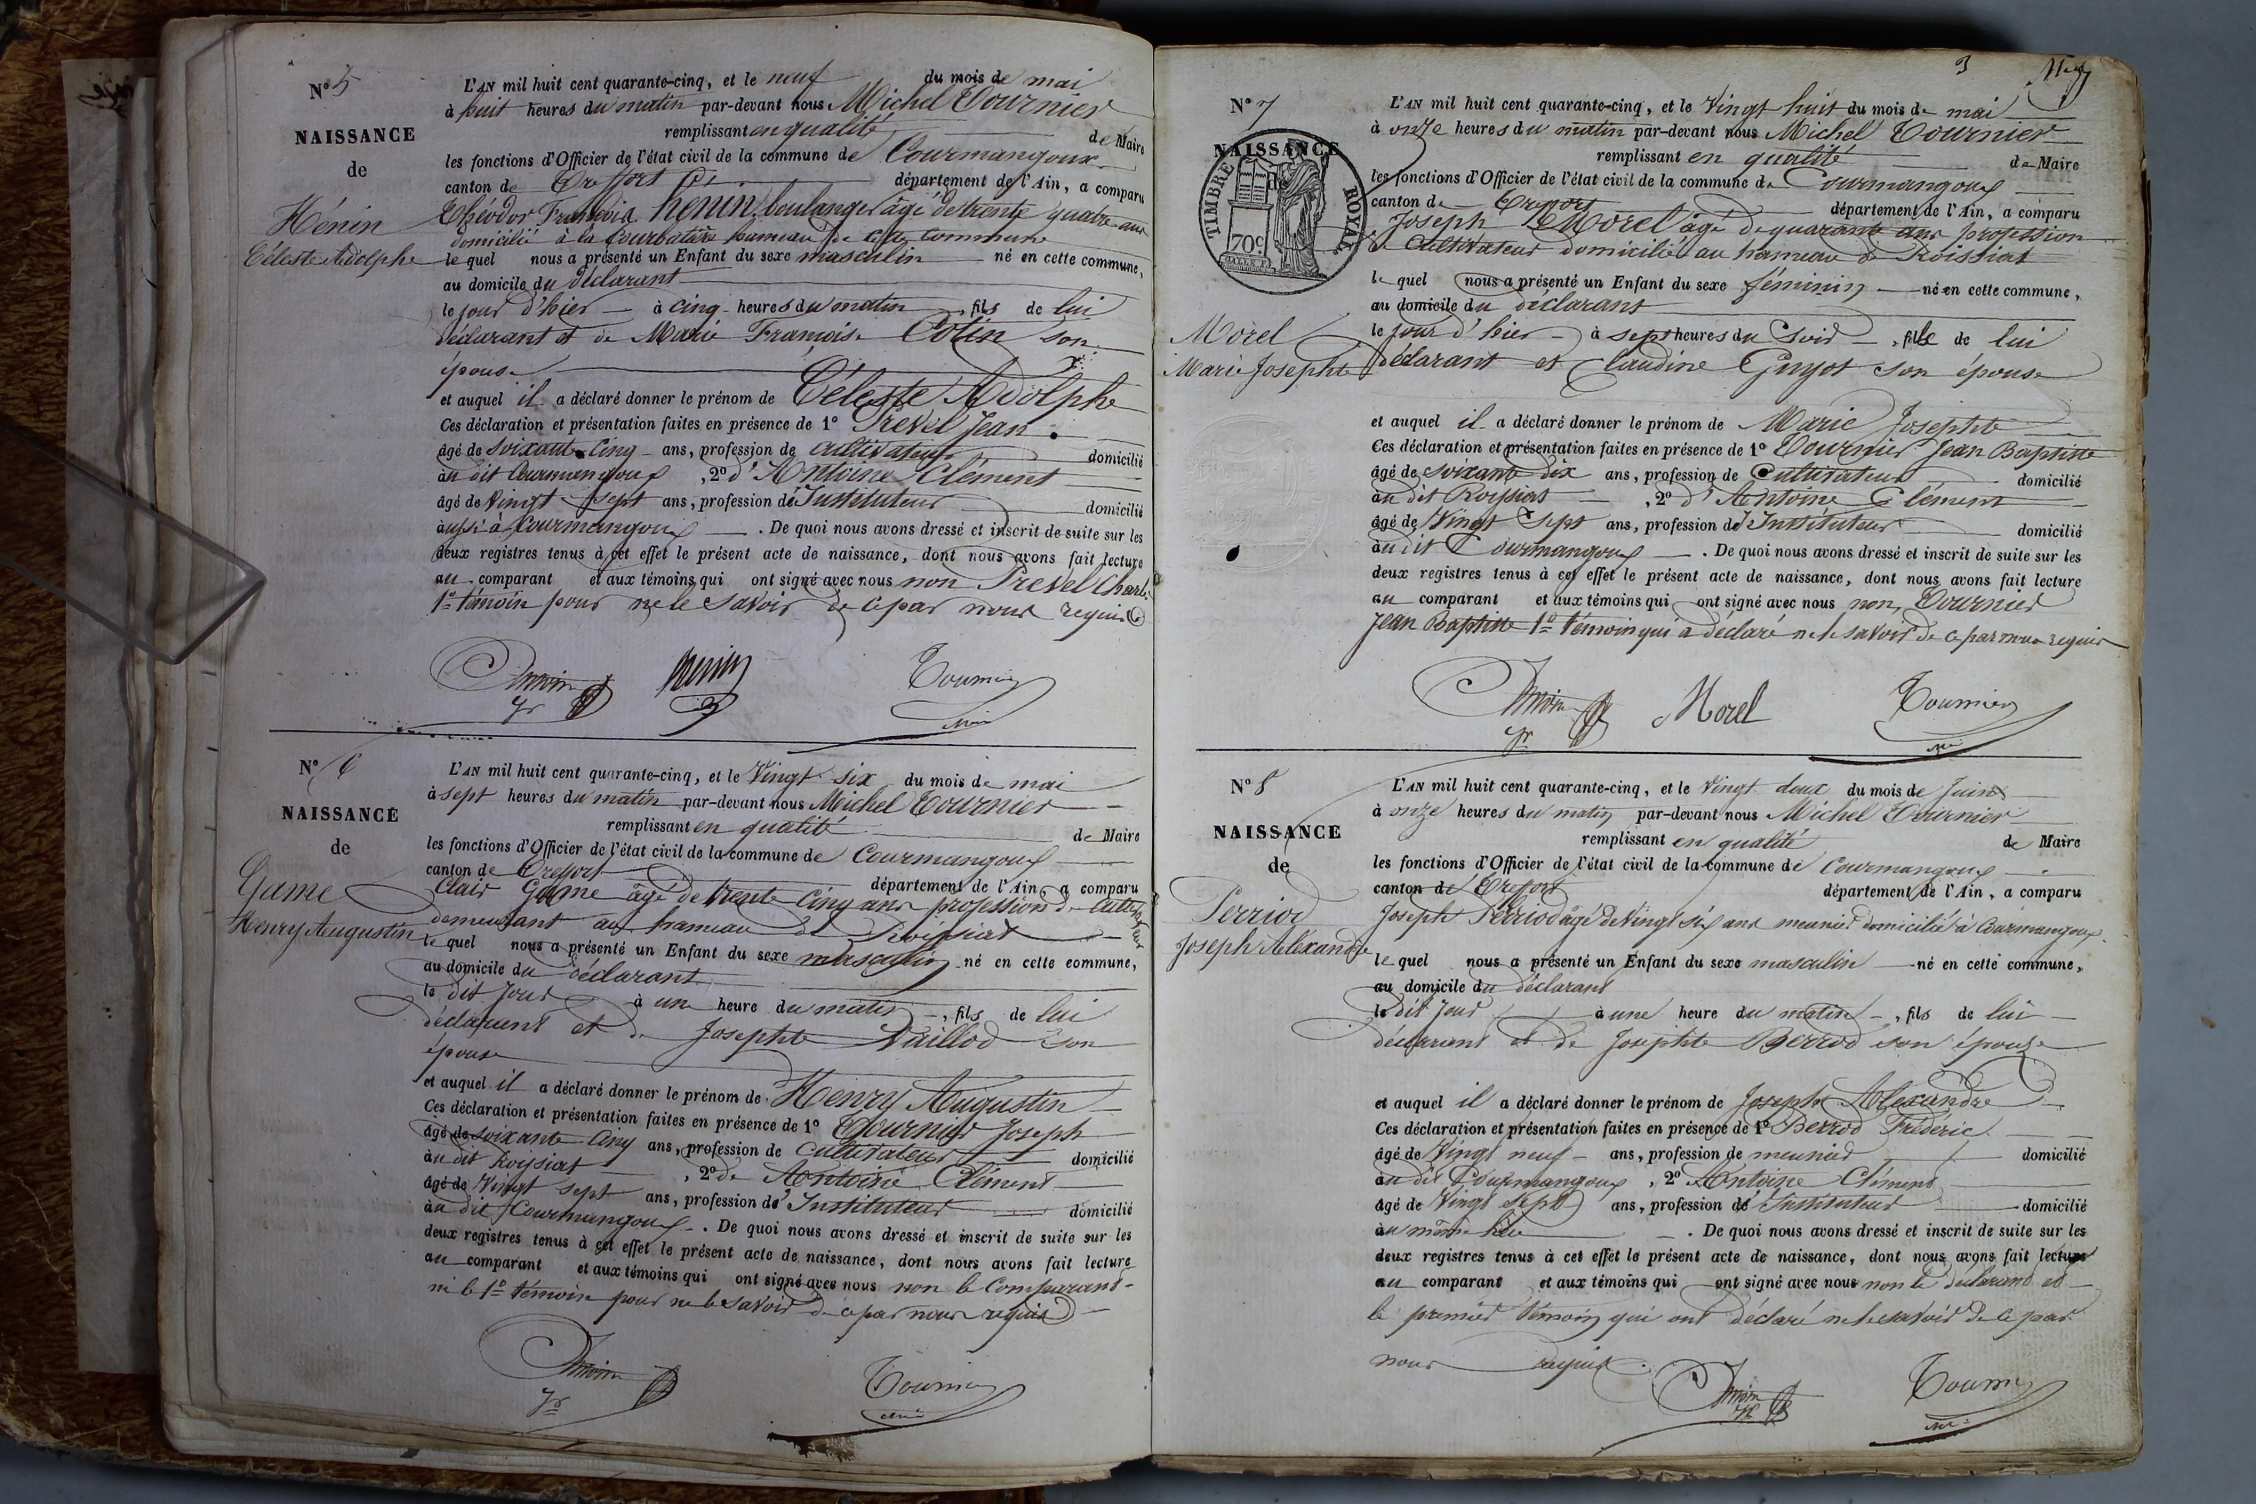 N° 5
NAISSANCE
de
Hénin
Céleste Adolphe
L'AN mil huit cent quarante-cinq, et le neuf du mois de mai
à huit heures du matin par-devant nous Michel Tournier
remplissant en qualité de Maire
les fonctions d'Officier de l'état civil de la commune de Courmangoux
canton de Treffort département de l'Ain, a comparu
Théodor François henin boulanger âgé de trente quatre ans
domicilié à la Courbatière hameau de cette commune
le quel nous a présenté un Enfant du sexe masculin né en cette commune,
au domicile du déclarant
le jour d'hier à cinq heures du matin, fils de lui
déclarant et de Marie Françoise Colin son
épouse
et auquel il a déclaré donner le prénom de Céleste Adolphe
Ces déclaration et présentation faites en présence de 1° Prevel Jean
âgé de soixante cinq ans, profession de cultivateur domicilié
au dit Courmangoux, 2° d'Antoine Clément
âgé de Vingt sept ans, profession d'Instituteur domicilié
aussi à Courmangoux. De quoi nous avons dressé et inscrit de suite sur les
deux registres tenus à cet effet le présent acte de naissance, dont nous avons fait lecture
au comparant et aux témoins qui ont signé avec nous non Prevel Charle
1er témoin pour ne le savoir de ce par nous requis
henin
Tournier
N° 6
NAISSANCE
de
Game
Henry Augustin
L'AN mil huit cent quarante-cinq, et le Vingt six du mois de mai
à sept heures du matin par-devant nous Michel Tournier
remplissant en qualité de Maire
les fonctions d'Officier de l'état civil de la commune de Courmangoux
canton de Treffort département de l'Ain, a comparu
Clair Game âgé de trente cinq ans profession de cultivateur
demeurant au hameau de Roissiat
le quel nous a présenté un Enfant du sexe masculin né en cette commune,
au domicile du déclarant
le dit jour à une heure du matin, fils de lui
déclarant et de Josephte Vaillod son
épouse
et auquel il a déclaré donner le prénom de Henry Augustin
Ces déclaration et présentation faites en présence de 1° Tournier Joseph
âgé de soixante cinq ans, profession de cultivateur domicilié
au dit Roissiat, 2° de Antoine Clément
âgé de Vingt sept ans, profession d'Instituteur domicilié
au dit Courmangoux. De quoi nous avons dressé et inscrit de suite sur les
deux registres tenus à cet effet le présent acte de naissance, dont nous avons fait lecture
au comparant et aux témoins qui ont signé avec nous non le Comparant
ni le 1er témoin pour ne le savoir de ce par nous requis
Tournier
3
N° 7
NAISSANCE
TIMBRE ROYAL
70c
Morel
Marie Josephte
L'AN mil huit cent quarante-cinq, et le Vingt huit du mois de mai
à onze heures du matin par-devant nous Michel Tournier
remplissant en qualité de Maire
les fonctions d'Officier de l'état civil de la commune de Courmangoux
canton de Treffort département de l'Ain, a comparu
Joseph Morel âgé de quarante ans profession
de Cultivateur domicilié au hameau de Roissiat
le quel nous a présenté un Enfant du sexe féminin né en cette commune,
au domicile du déclarant
le jour d'hier à sept heures du Soir, fille de lui
déclarant et Claudine Guyot son épouse
et auquel il a déclaré donner le prénom de Marie Josephte
Ces déclaration et présentation faites en présence de 1° Tournier Jean Baptiste
âgé de soixante dix ans, profession de Cultivateur domicilié
au dit Roissiat, 2° d'Antoine Clément
âgé de Vingt Sept ans, profession d'Instituteur domicilié
au dit Courmangoux. De quoi nous avons dressé et inscrit de suite sur les
deux registres tenus à cet effet le présent acte de naissance, dont nous avons fait lecture
au comparant et aux témoins qui ont signé avec nous non Tournier
Jean Baptiste 1er témoin qui a déclaré ne le savoir de ce par nous requis
Morel
Tournier
N° 8
NAISSANCE
de
Perriod
Joseph Alexandre
L'AN mil huit cent quarante-cinq, et le Vingt deux du mois de Juin
à onze heures du matin par-devant nous Michel Tournier
remplissant en qualité de Maire
les fonctions d'Officier de l'état civil de la commune de Courmangoux
canton de Treffort département de l'Ain, a comparu
Joseph Perriod âgé de Vingt six ans meunier domicilié à Courmangoux
le quel nous a présenté un Enfant du sexe masculin né en cette commune,
au domicile du déclarant
le dit jour à une heure du matin, fils de lui
déclarant et de Josephte Berrod son épouse
et auquel il a déclaré donner le prénom de Joseph Alexandre
Ces déclaration et présentation faites en présence de 1° Berrod Fréderic
âgé de Vingt neuf ans, profession de meunier domicilié
au dit Courmangoux, 2° Antoine Clément
âgé de Vingt sept ans, profession d'Instituteur domicilié
au même lieu. De quoi nous avons dressé et inscrit de suite sur les
deux registres tenus à cet effet le présent acte de naissance, dont nous avons fait lecture
au comparant et aux témoins qui ont signé avec nous non le déclarant et
le premier témoin qui ont déclaré ne le savoir de ce par
nous requis
Tournier